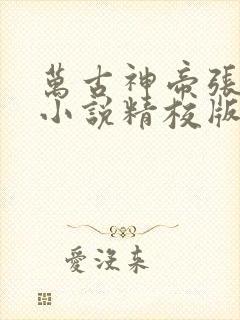 萬古神帝張
小說精校版
愛沒来